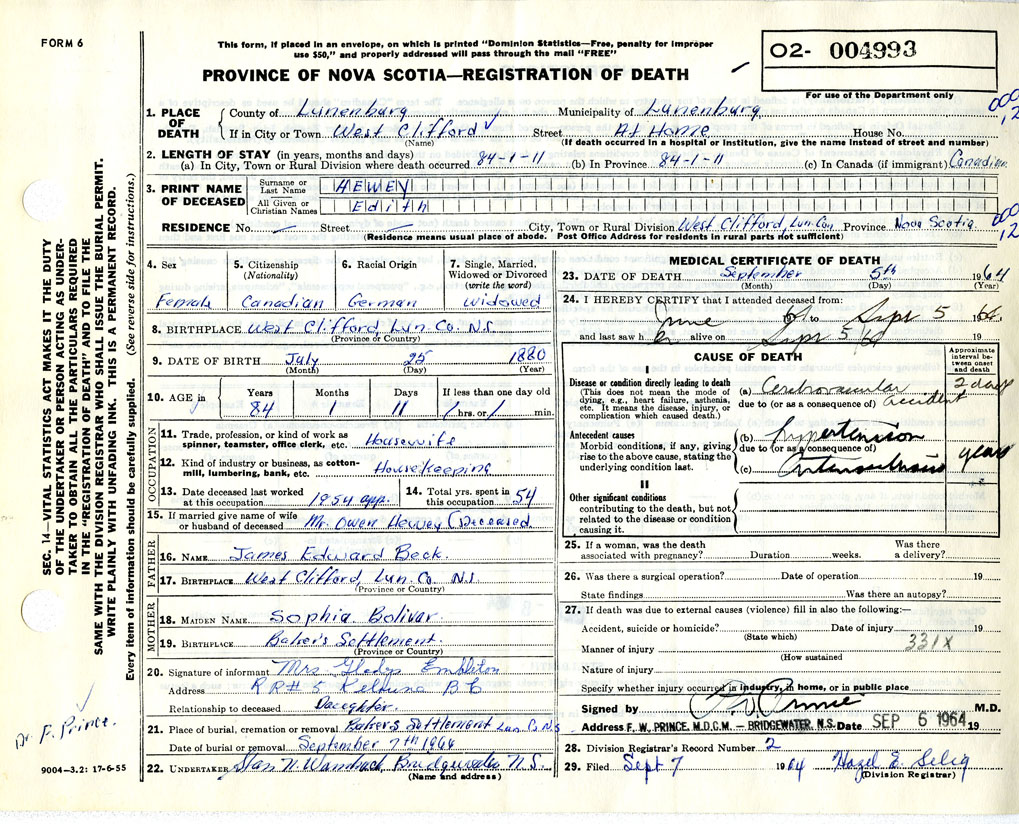 FORM 6
This form, if placed in an envelope, on which is printed "Dominion Statistics—Free, penalty for improper
use $50," and properly addressed will pass through the mail "FREE"
PROVINCE OF NOVA SCOTIA—REGISTRATION OF DEATH
02- 004993
For use of the Department only
1. PLACE OF DEATH County of Lunenburg Municipality of Lunenburg
If in City or Town West Clifford Street At Home House No.
(Name) (If death occurred in a hospital or institution, give the name instead of street and number)
2. LENGTH OF STAY (in years, months and days)
(a) In City, Town or Rural Division where death occurred 84-1-11 (b) In Province 84-1-11 (c) In Canada (if immigrant) Canadian
3. PRINT NAME OF DECEASED Surname or Last Name HEWEY
All Given or Christian Names Edith
RESIDENCE No. — Street — City, Town or Rural Division West Clifford, Lun. Co. Province Nova Scotia
(Residence means usual place of abode. Post Office Address for residents in rural parts not sufficient)
000
12
000
12
4. Sex
Female
5. Citizenship
(Nationality)
Canadian
6. Racial Origin
German
7. Single, Married,
Widowed or Divorced
(write the word)
Widowed
8. BIRTHPLACE West Clifford Lun. Co. N.S.
(Province or Country)
9. DATE OF BIRTH July 25 1880
(Month) (Day) (Year)
10. AGE in Years Months Days If less than one day old
84 1 11 / hrs. or / min.
OCCUPATION
11. Trade, profession, or kind of work as
spinner, teamster, office clerk, etc. Housewife
12. Kind of industry or business, as cotton-
mill, lumbering, bank, etc. Housekeeping
13. Date deceased last worked
at this occupation. 1954 app.
14. Total yrs. spent in
this occupation 54
15. If married give name of wife
or husband of deceased Mr. Owen Hewey (Deceased
FATHER
16. NAME James Edward Beck.
17. BIRTHPLACE West Clifford, Lun. Co. N.S.
(Province or Country)
MOTHER
18. MAIDEN NAME Sophia Bolivar.
19. BIRTHPLACE Baker's Settlement.
(Province or Country)
20. Signature of informant Mrs. Gladys
Address RR# 5 B.C
Relationship to deceased Daughter.
21. Place of burial, cremation or removal Bakers Settlement Lun Co N.S
Date of burial or removal September 7th 1964
22. UNDERTAKER Bridgewater N.S.
(Name and address)
MEDICAL CERTIFICATE OF DEATH
23. DATE OF DEATH September 5th 1964
(Month) (Day) (Year)
24. I HEREBY CERTIFY that I attended deceased from:
June to Sept 5 1964
and last saw her alive on Sept 5/64 19
CAUSE OF DEATH
Approximate
interval be-
tween onset
and death
I
Disease or condition directly leading to death
(This does not mean the mode of
dying, e.g., heart failure, asthenia,
etc. It means the disease, injury, or
complication which caused death.)
(a) Cerebrovascular 2 days
due to (or as a consequence of) accident
Antecedent causes
Morbid conditions, if any, giving
rise to the above cause, stating the
underlying condition last.
(b) Hypertension
due to (or as a consequence of)
(c) years
II
Other significant conditions
contributing to the death, but not
related to the disease or condition
causing it.
25. If a woman, was the death Was there
associated with pregnancy? Duration weeks. a delivery?
26. Was there a surgical operation? Date of operation 19
State findings Was there an autopsy?
27. If death was due to external causes (violence) fill in also the following:—
Accident, suicide or homicide? Date of injury 19
(State which)
331X
Manner of injury
(How sustained
Nature of injury
Specify whether injury occurred in industry, in home, or in public place
Signed by F W Prince M.D.
Address F. W. PRINCE, M.D.C.M. — BRIDGEWATER, N.S. Date SEP 6 1964 19
28. Division Registrar's Record Number 2
29. Filed Sept 7 1964 Hazel E. Selig
(Division Registrar)
SEC. 14—VITAL STATISTICS ACT MAKES IT THE DUTY
OF THE UNDERTAKER OR PERSON ACTING AS UNDER-
TAKER TO OBTAIN ALL THE PARTICULARS REQUIRED
IN THE "REGISTRATION OF DEATH" AND TO FILE THE
SAME WITH THE DIVISION REGISTRAR WHO SHALL ISSUE THE BURIAL PERMIT.
WRITE PLAINLY WITH UNFADING INK. THIS IS A PERMANENT RECORD.
Every item of information should be carefully supplied. (See reverse side for instructions.)
Dr. F. Prince.
9004-3.2: 17-6-55